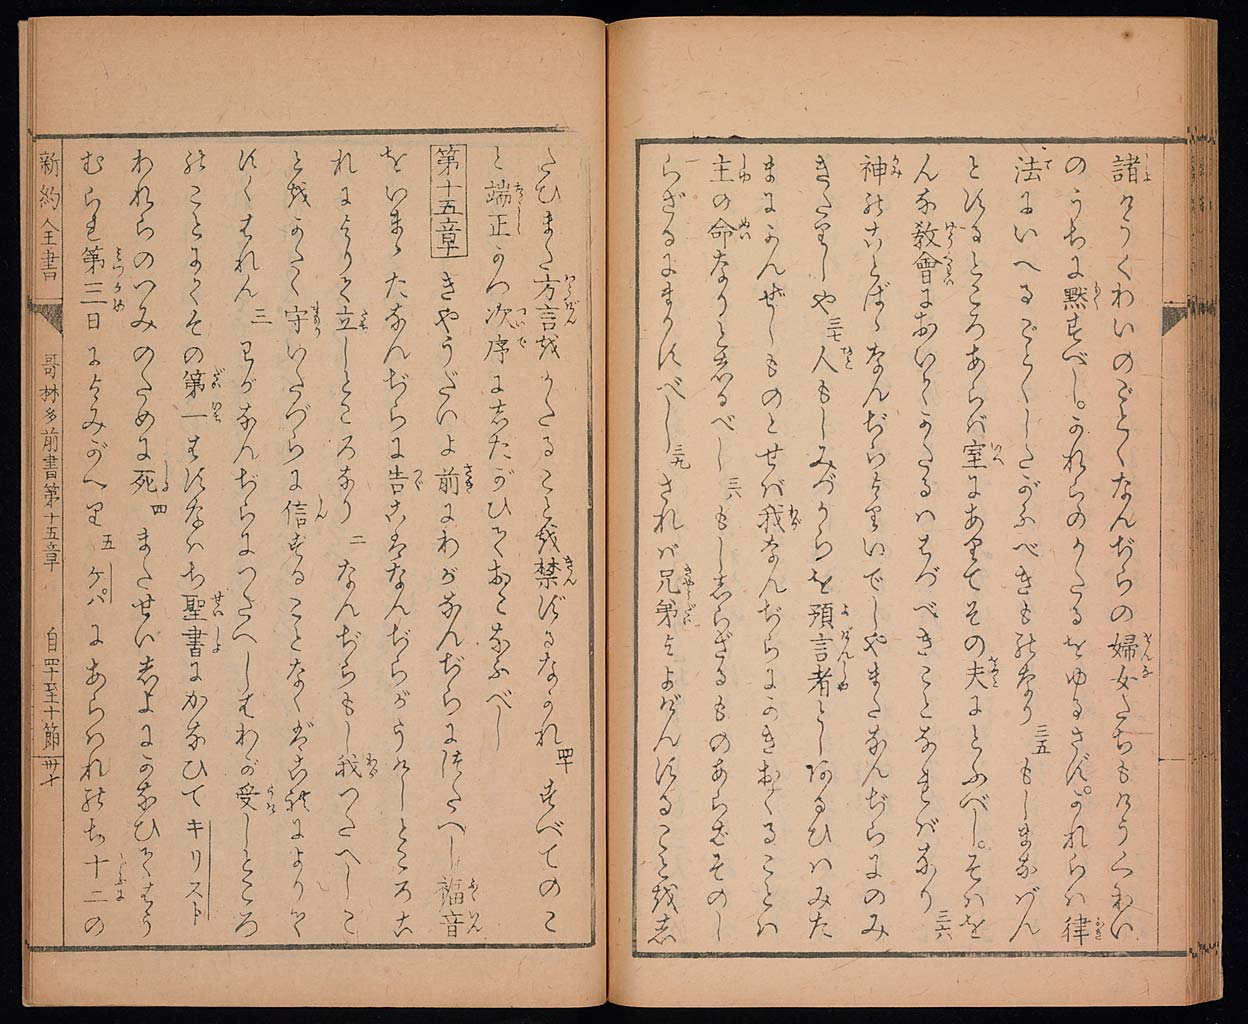 諸けうくわいのごとくなんぢらの婦女たちもけうくわい
のうちに黙すべし。かれらのかたるをゆるさず。かれらは律
法にいへるごとくしたがふべきものなり 三五 もしまなばん
とするところあらば室にありてその夫にとふべし。そはを
んな教會においてかたるははづべきことなればなり 三六
神のことばゝなんぢらよりいでしやまたなんぢらにのみ
きたりしや 三七 人もしみづからを預言者としあるひはみた
まにかんぜしものとせば我なんぢらにかきおくることは
主の命なりとしるべし 三八 もししらざるものあらばそのし
らざるにまかすべし 三九 されば兄弟よよげんすることをし
たひまた方言をかたることを禁ずるなかれ 四十 すべてのこ
と端正かつ次序にしたがひておこなふべし
第十五章 きやうだいよ前にわがなんぢらにつたへし福音
をいまゝたなんぢらに告これなんぢらがうけしところこ
れによりて立しところなり 二 なんぢらもし我つたへしこ
とをかたく守いたづらに信ずることなくばこれによりて
すくはれん 三 わがなんぢらにつたへしはわが受しところ
のことにてその第一はすなはち聖書にかなひてキリスト
われらのつみのために死 四 またせいしよにかなひてはう
むられ第三日によみがへり 五 ケパにあらはれのち十二の
新約全書 哥林多前書第十五章 自四十至十節 卅十